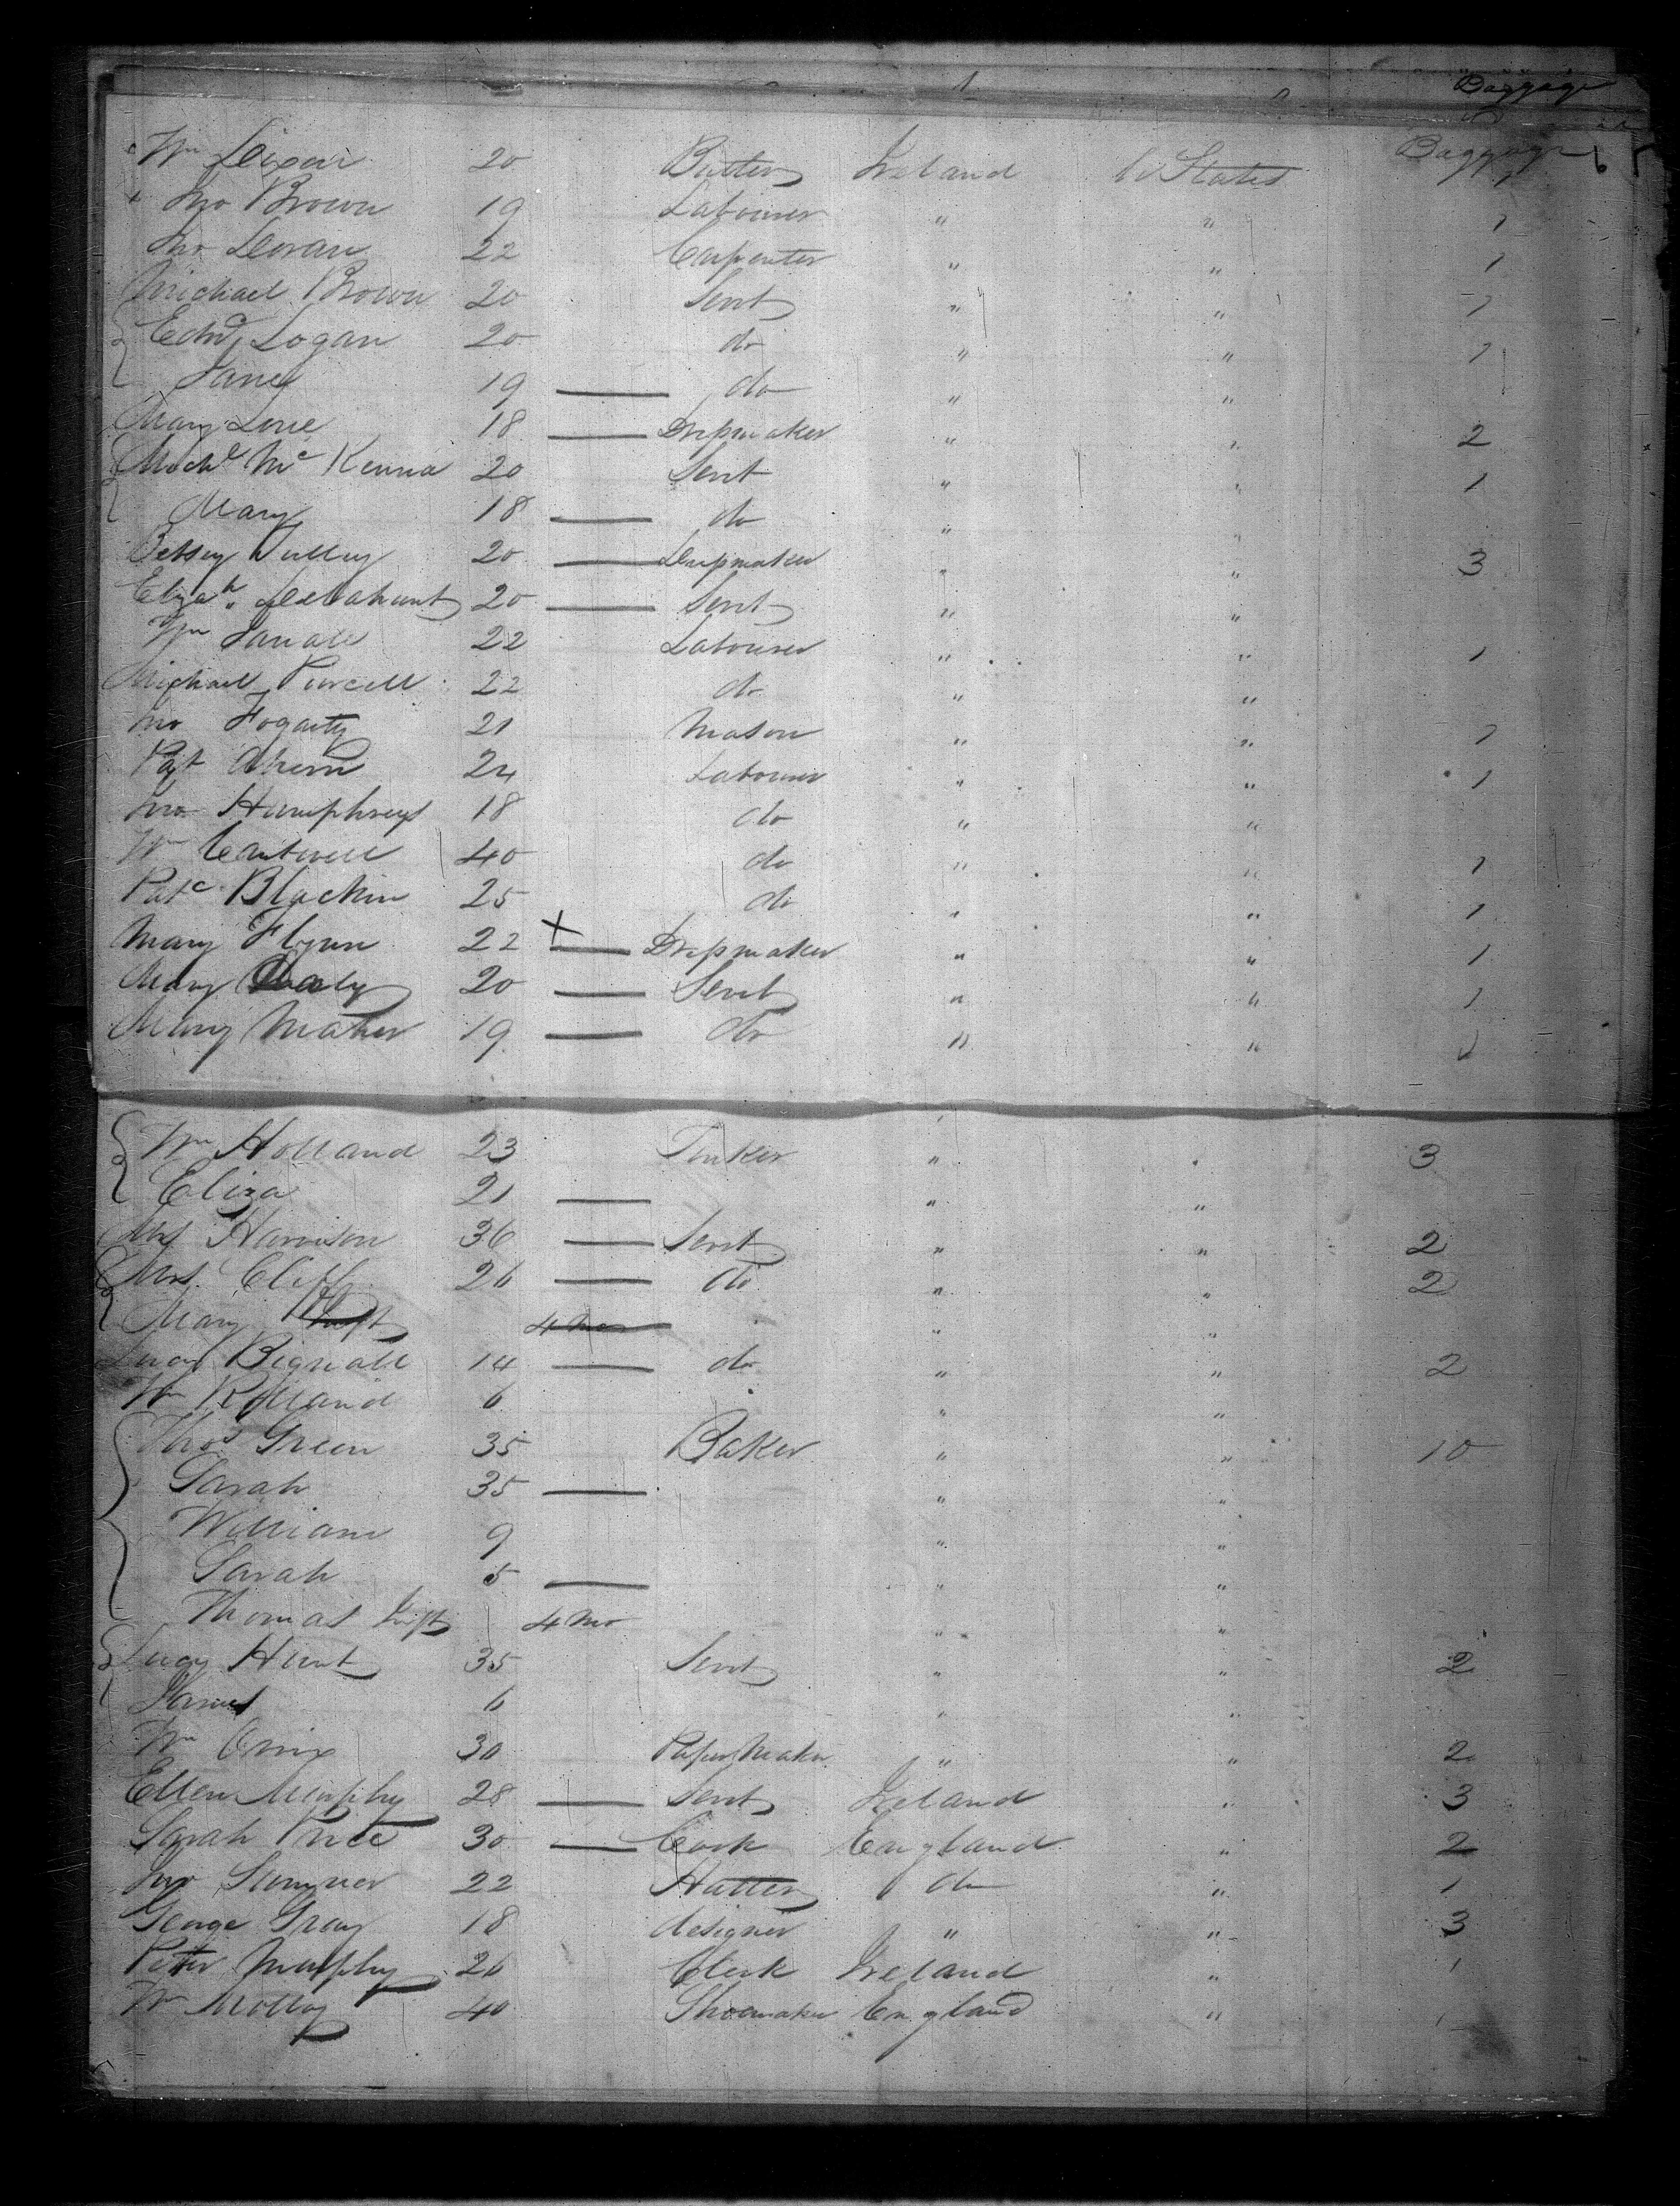 Baggage
Wm Dixon 20 Butler Ireland U States Baggage 1
Jno Brown 19 Labourer " " 1
Jno Doran 22 Carpenter " " 1
Michael Brown 20 Servt " " 1
Edwd Logan 20 do " " 1
Jane 19 — do " "
Mary Love 18 — Drepmaker " " 2
Michl McKenna 20 Servt " " 1
Mary 18 — do " "
Betsey Tulley 20 — Drepmaker " " 3
Elizah Delahunt 20 — Servt " "
Wm 22 Labourer " " 1
Michael Purcell 22 do " "
Jno Fogarty 21 Mason " " 1
Pat Ahern 24 Labourer " " 1
Jno Humphreys 18 do " "
Wm Cantwell 40 do " " 1
Patc Blackin 25 do " " 1
Mary Flynn 22 — Drepmaker " " 1
Mary Healy 20 — Servt " " 1
Mary Maher 19 — do " "
Wm Holland 23 Tinker " " 3
Eliza 21 — " "
Mrs Harrison 36 — Servt " " 2
Mrs Cliff 26 — do " " 2
Mary Inft 4 mo " "
Lucy Bignall 14 — do " " 2
Wm Rolland 6 " "
Thos Green 35 Baker " " 10
Sarah 35 — " "
William 9 " "
Sarah 5 — " "
Thomas Inft 4 mo " "
Lucy Hunt 35 Servt " " 2
James 6 " "
Wm 30 Paper Maker " " 2
Ellen Murphy 28 — Servt Ireland " 3
Sarah Price 30 — Cook England " 2
Jno Sumner 22 Hatter do " 1
George Gray 18 designer " " 3
Peter Murphy 26 Clerk Ireland " 1
Wm Molloy 40 Shoemaker England "